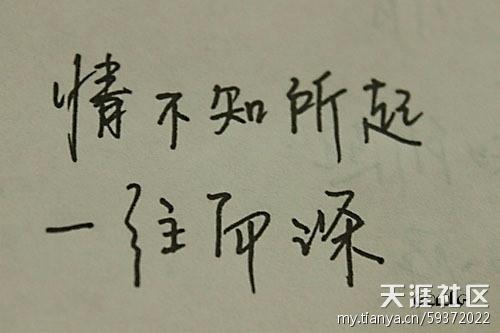 情不知所起
一往而深
天涯社区
my.tianya.cn/59372022